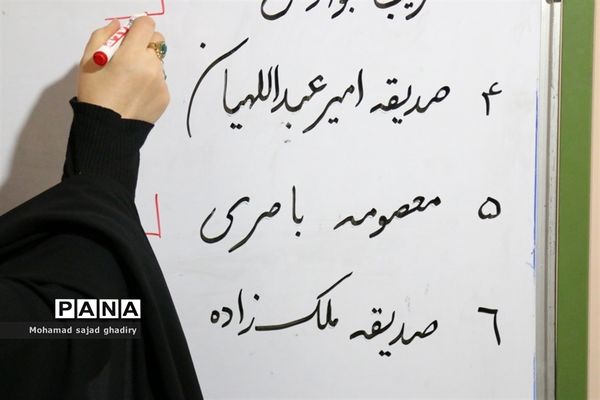 ۴ صدیقه امیرعبداللهیان
۵ معصومه باصری
۶ صدیقه ملک‌زاده
PANA
Mohamad sajad ghadiry